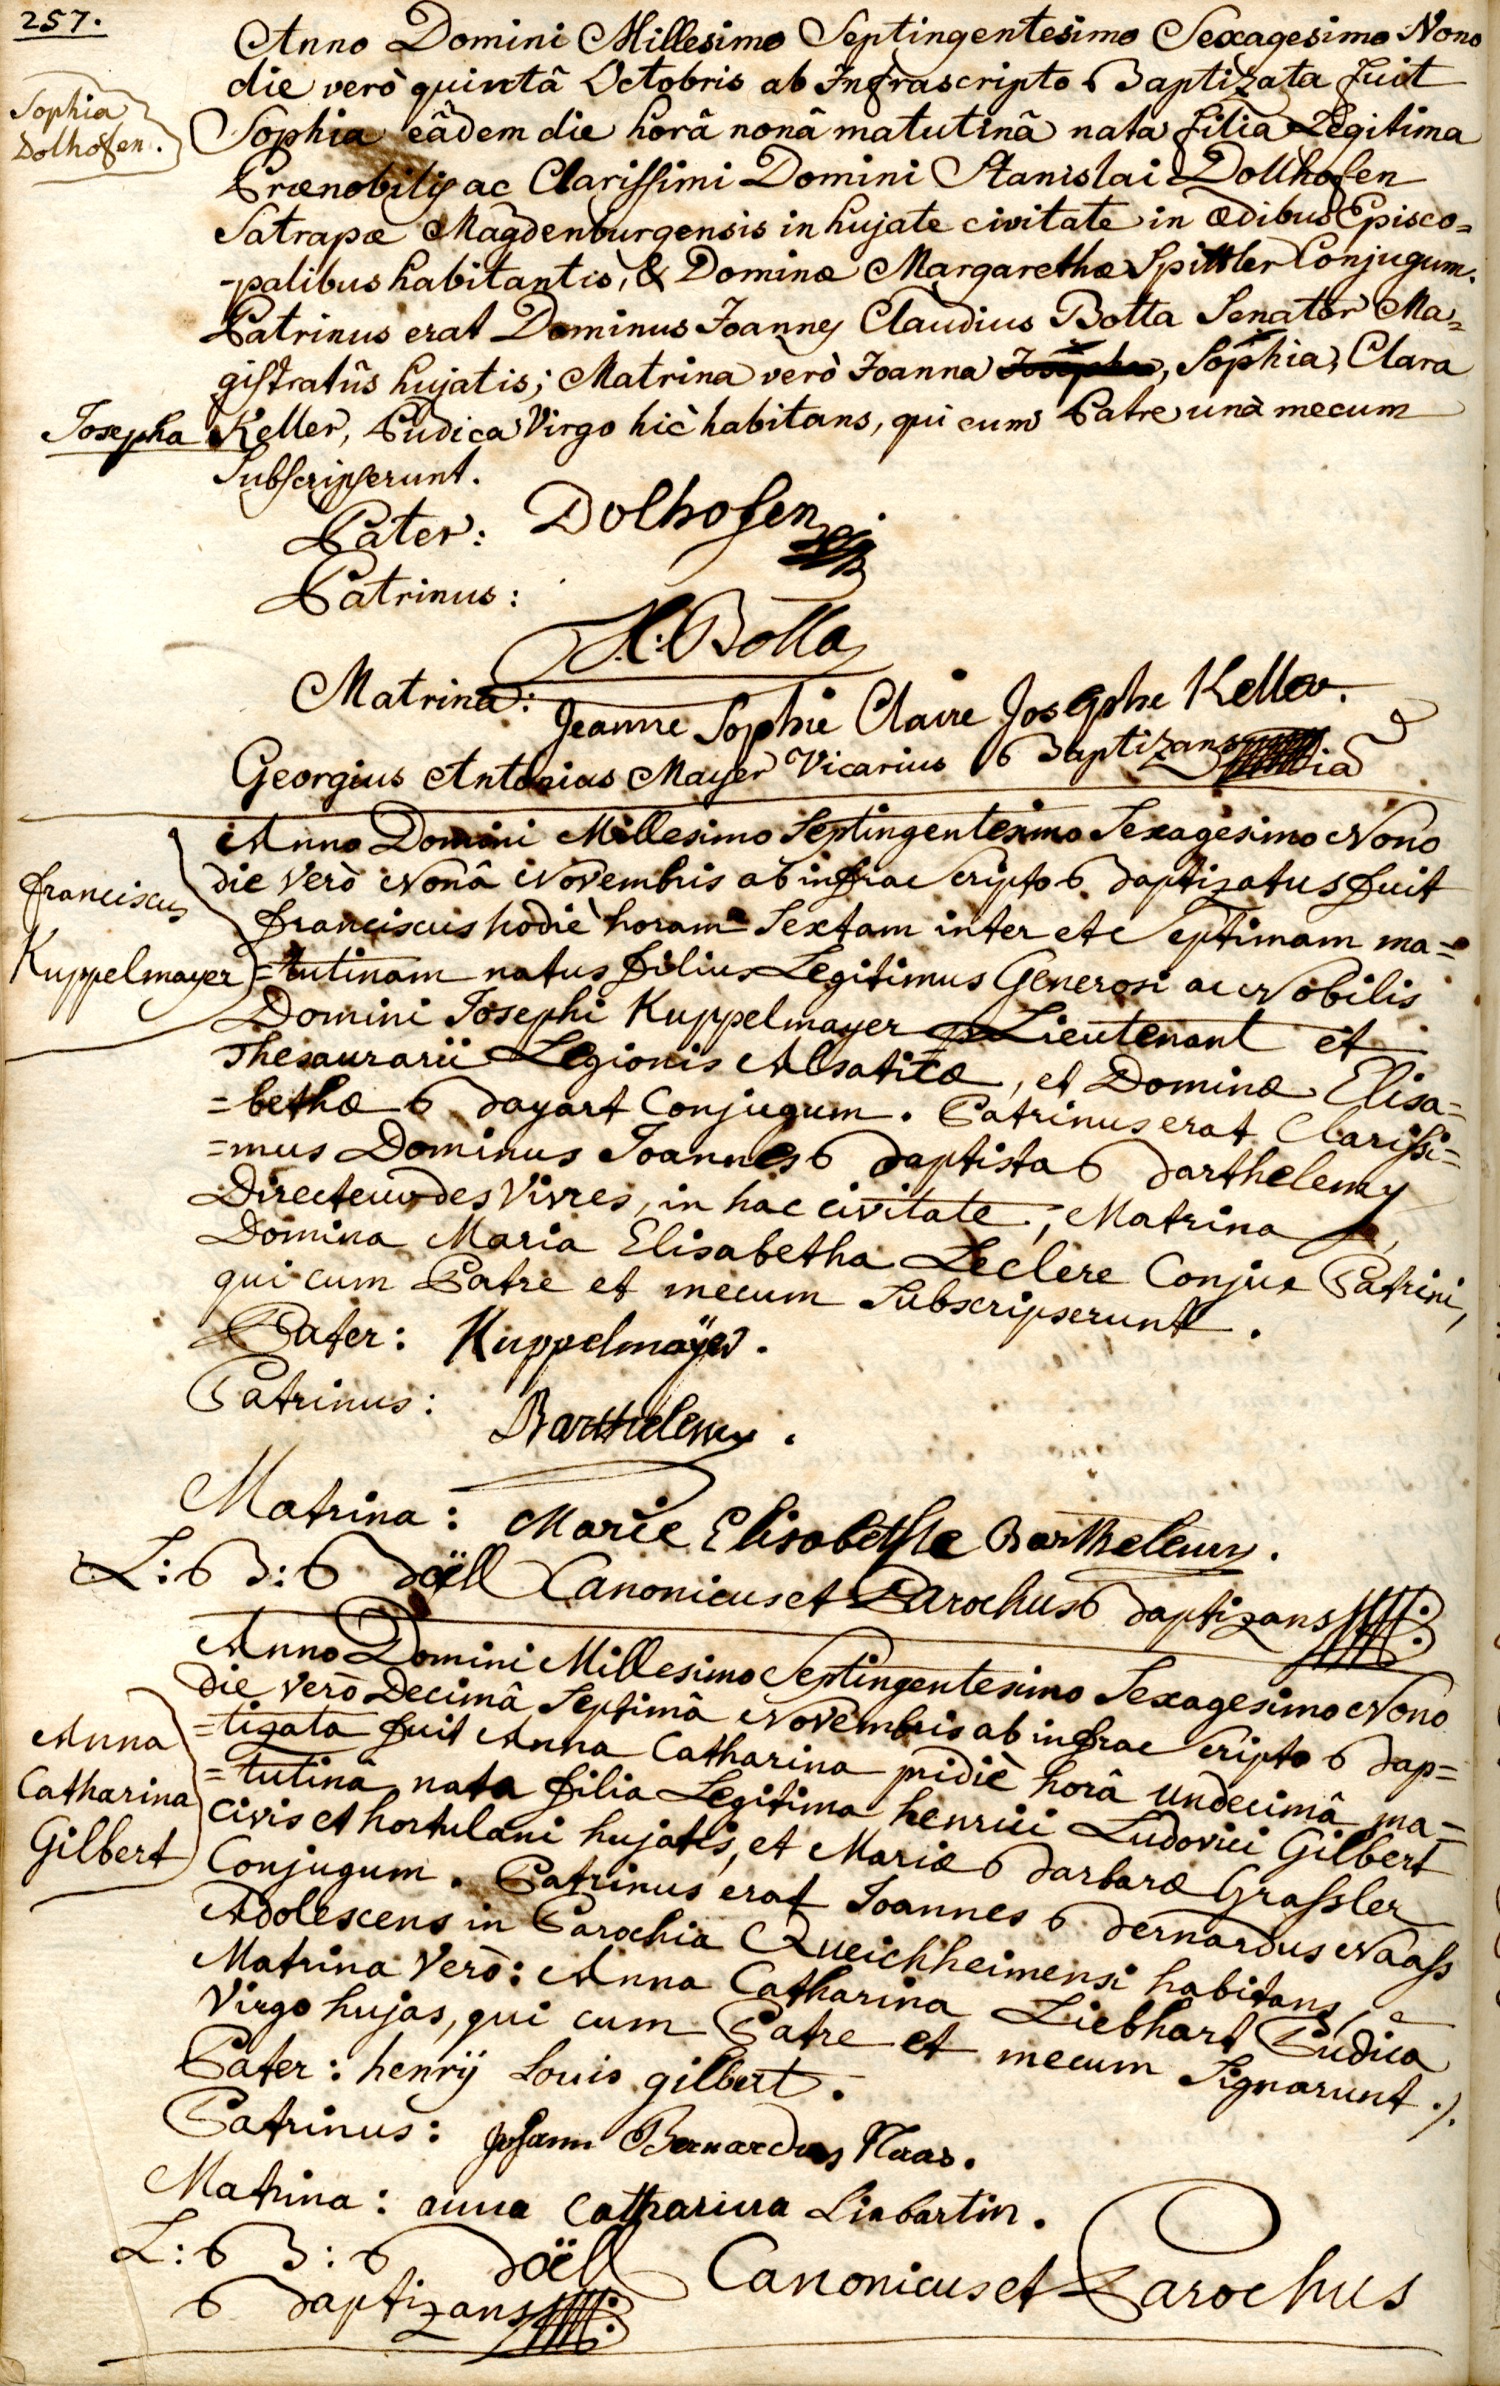 257.
Anno Domini Millesimo Septingentesimo Sexagesimo Nono
die verò quintâ Octobris ab Infrascripto Baptizata fuit
Sophia
Dolhofen.
Sophia eâdem die horâ nonâ matutinâ nata filia Legitima
Prænobilis ac Clarissimi Domini Stanislai Dollhofen
Satrapæ Magdenburgensis in hujate civitate in ædibus Episco=
-palibus habitantis, & Dominæ Margarethæ Spittler Conjugum.
Patrinus erat Dominus Joannes Claudius Botta Senator Ma=
gistratûs hujatis; Matrina verò Joanna Josepha, Sophia, Clara
Josepha Keller, Pudica Virgo hìc habitans, qui cum Patre unà mecum
Subscripserunt.
Pater: Dolhofen
Patrinus:
Botta
Matrina: Jeanne Sophie Claire Josephe Keller.
Georgius Antonius Mayer Vicarius Baptizans
Anno Domini Millesimo Septingentesimo Sexagesimo Nono
die Verò Nonâ Novembris ab infrascripto Baptizatus fuit
franciscus
Kuppelmayer
franciscus hodiè horam Sextam inter et Septimam ma=
=tutinam natus filius Legitimus Generosi ac Nobilis
Domini Josephi Kuppelmayer Lieutenant et
Thesaurarii Legionis Alsaticæ, et Dominæ Elisa=
=bethæ Bayart Conjugum. Patrinus erat Clarissi=
=mus Dominus Joannes Baptista Barthelemy
Directeur des Vivres, in hac civitate, Matrina
Domina Maria Elisabetha Leclere Conjux Patrini,
qui cum Patre et mecum Subscripserunt.
Pater: Kuppelmaÿer.
Patrinus:
Barthelemy.
Matrina: Marie Elisabethe Barthelemy.
L: B: Böell Canonicus et Parochus Baptizans
Anno Domini Millesimo Septingentesimo Sexagesimo Nono
die verò Decimâ Septimâ Novembris ab infrascripto Bap=
Anna
Catharina
Gilbert
=tizata fuit Anna Catharina pridiè horâ undecimâ ma=
=tutinâ nata filia Legitima henrici Ludovici Gilbert
civis et hortulani hujatis, et Mariæ Barbaræ Grassler
Conjugum. Patrinus erat Joannes Bernardus Naass
Adolescens in Parochia Queichheimensi habitans,
Matrina Verò: Anna Catharina Liebhart Pudica
Virgo hujas, qui cum Patre et mecum Signarunt.
Pater: henrÿ Louis gilbert.
Patrinus: Johann Bernardus Naas.
Matrina: anna Catharina Liebartin.
L: B: Böell Canonicus et Parochus
Baptizans